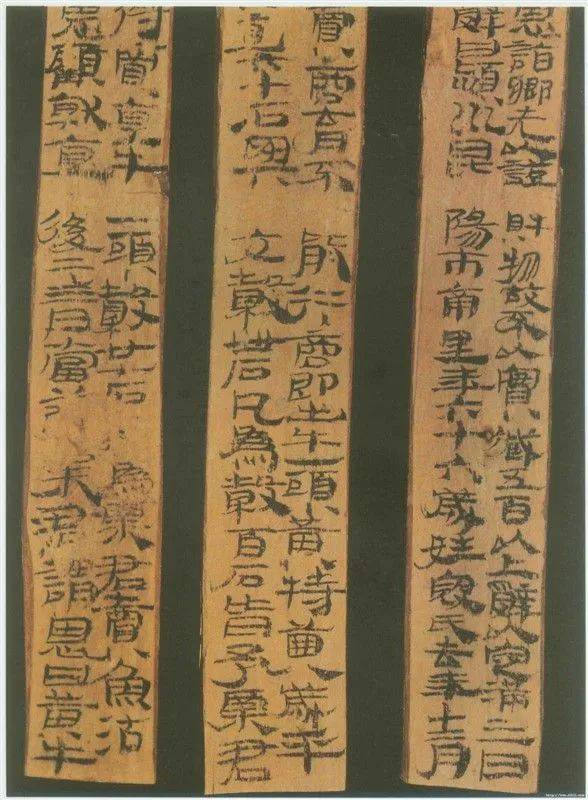 恩詣鄉先以證財物故不以實臧五百以上辭以定滿三日
辭曰潁川昆陽市南里年六十六歲姓寇氏去年十二月
賣商育不能行商即出牛一頭黃特齒八歲平
直六十石與它穀卌石凡為穀百石皆予粟君
得賈直牛一頭穀廿七石約為粟君賣魚沽
恩顧就直後二三日當發粟君謂恩曰黃牛